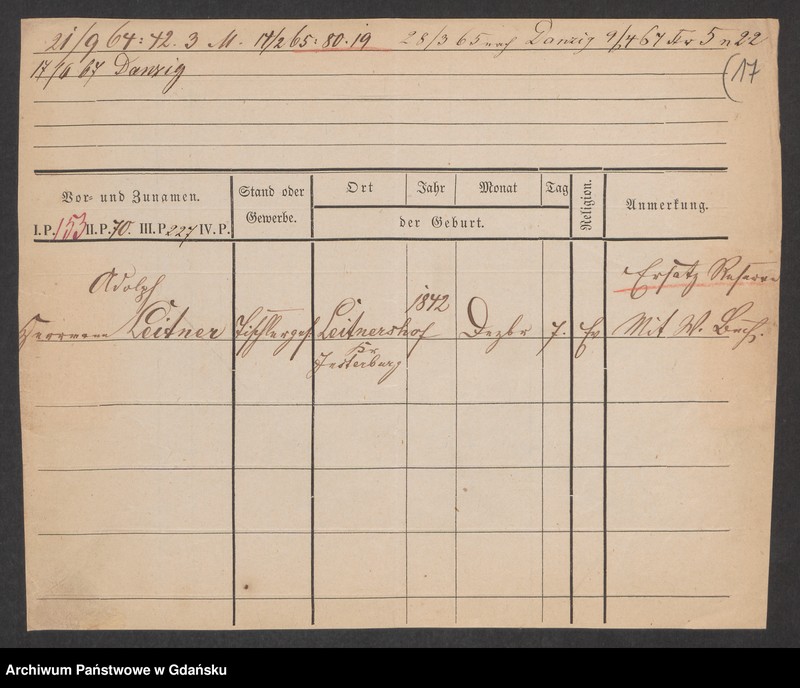 21/9 64: 42. 3 M. 17/2 65: 80. 19 28/3 65 nach Danzig 9/4 67 5 n 22
17/6 67 Danzig
(17
Vor- und Zunamen. Stand oder Gewerbe. Ort Jahr Monat Tag der Geburt. Religion. Anmerkung.
I.P. 153 II.P. 70. III.P 227 IV.P.
Ersatz Reserve
Adolph 1842
Herrmann Leitner Tischlerges. Leitnershof Dezbr 7. Ev Mit W. Buch.
Kr
Insterburg
Archiwum Państwowe w Gdańsku